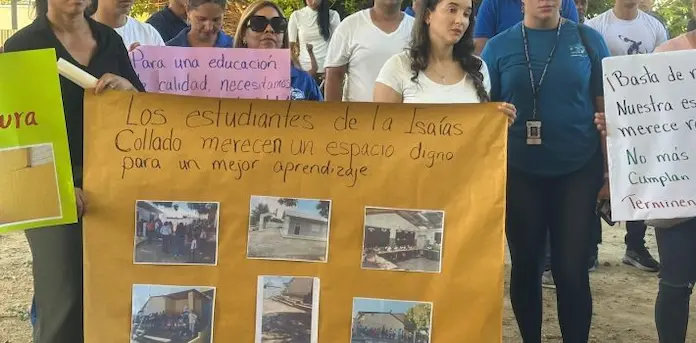 ura
Para una educación
calidad, necesitamos
Los estudiantes de la Isaías
Collado merecen un espacio digno
para un mejor aprendizaje
¡Basta de
Nuestra es
merece r
No más
Cumplan
Terminen